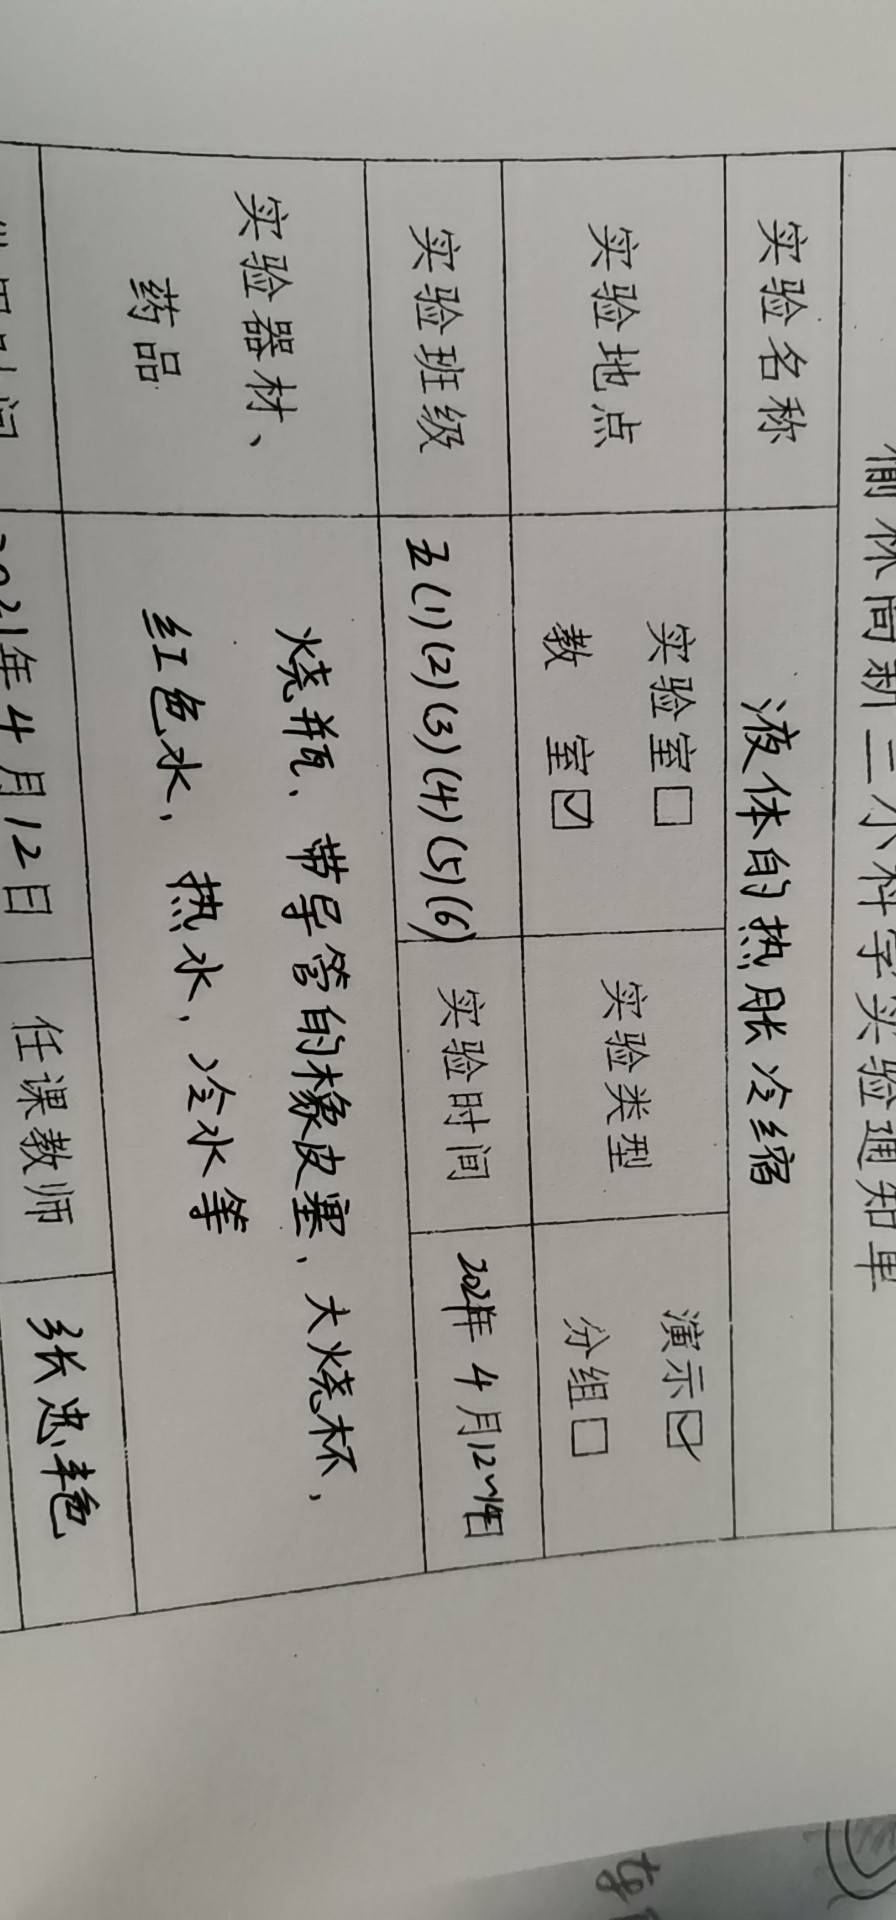 榆林高新三小科学实验通知单
实验名称 液体的热胀冷缩
实验地点 实验室□ 教 室☑ 实验类型 演示☑ 分组□
实验班级 五(1)(2)(3)(4)(5)(6) 实验时间 2021年4月12~14日
实验器材、
药品
烧瓶、带导管的橡皮塞、大烧杯,
红色水, 热水, 冷水等
时间 2021年4月12日 任课教师 张忠艳